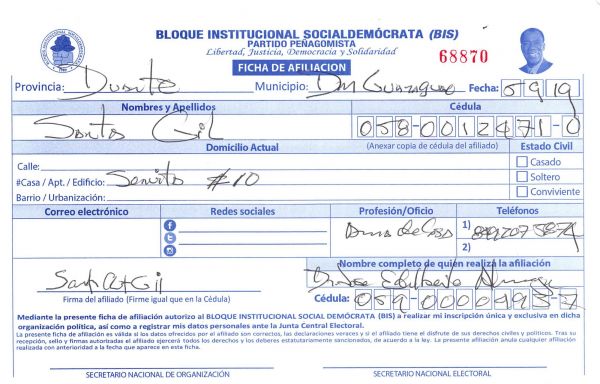 BLOQUE INSTITUCIONAL SOCIALDEMÓCRATA (BIS)
PARTIDO PEÑAGOMISTA
Libertad, Justicia, Democracia y Solidaridad
68870
FICHA DE AFILIACION
Provincia: Duarte Municipio: DM Guaraguao Fecha: 5 9 19
Nombres y Apellidos Cédula
Santa Gil 058-0012471-0
Domicilio Actual (Anexar copia de cédula del afiliado) Estado Civil
Calle: Casado
#Casa / Apt. / Edificio: #10 Soltero
Barrio / Urbanización: Conviviente
Correo electrónico Redes sociales Profesión/Oficio Teléfonos
Ama de Casa 1)
2)
Nombre completo de quién realizá la afiliación
Santa Gil Edilberto
Firma del afiliado (Firme igual que en la Cédula) Cédula: 059-0000993-7
Mediante la presente ficha de afiliación autorizo al BLOQUE INSTITUCIONAL SOCIAL DEMÓCRATA (BIS) a realizar mi inscripción única y exclusiva en dicha
organización política, así como a registrar mis datos personales ante la Junta Central Electoral.
La presente ficha de afiliación es válida si los datos ofrecidos por el afiliado son correctos, las declaraciones veraces y si el afiliado tiene el disfrute de sus derechos civiles y políticos. Tras su
recepción, sello y firmas autorizadas el afiliado ejercerá todos los derechos y los deberes estatutariamente sancionados, de acuerdo a la ley. La presente afiliación anula cualquier afiliación
realizada con anterioridad a la fecha que aparece en esta ficha.
SECRETARIO NACIONAL DE ORGANIZACIÓN SECRETARIO NACIONAL ELECTORAL